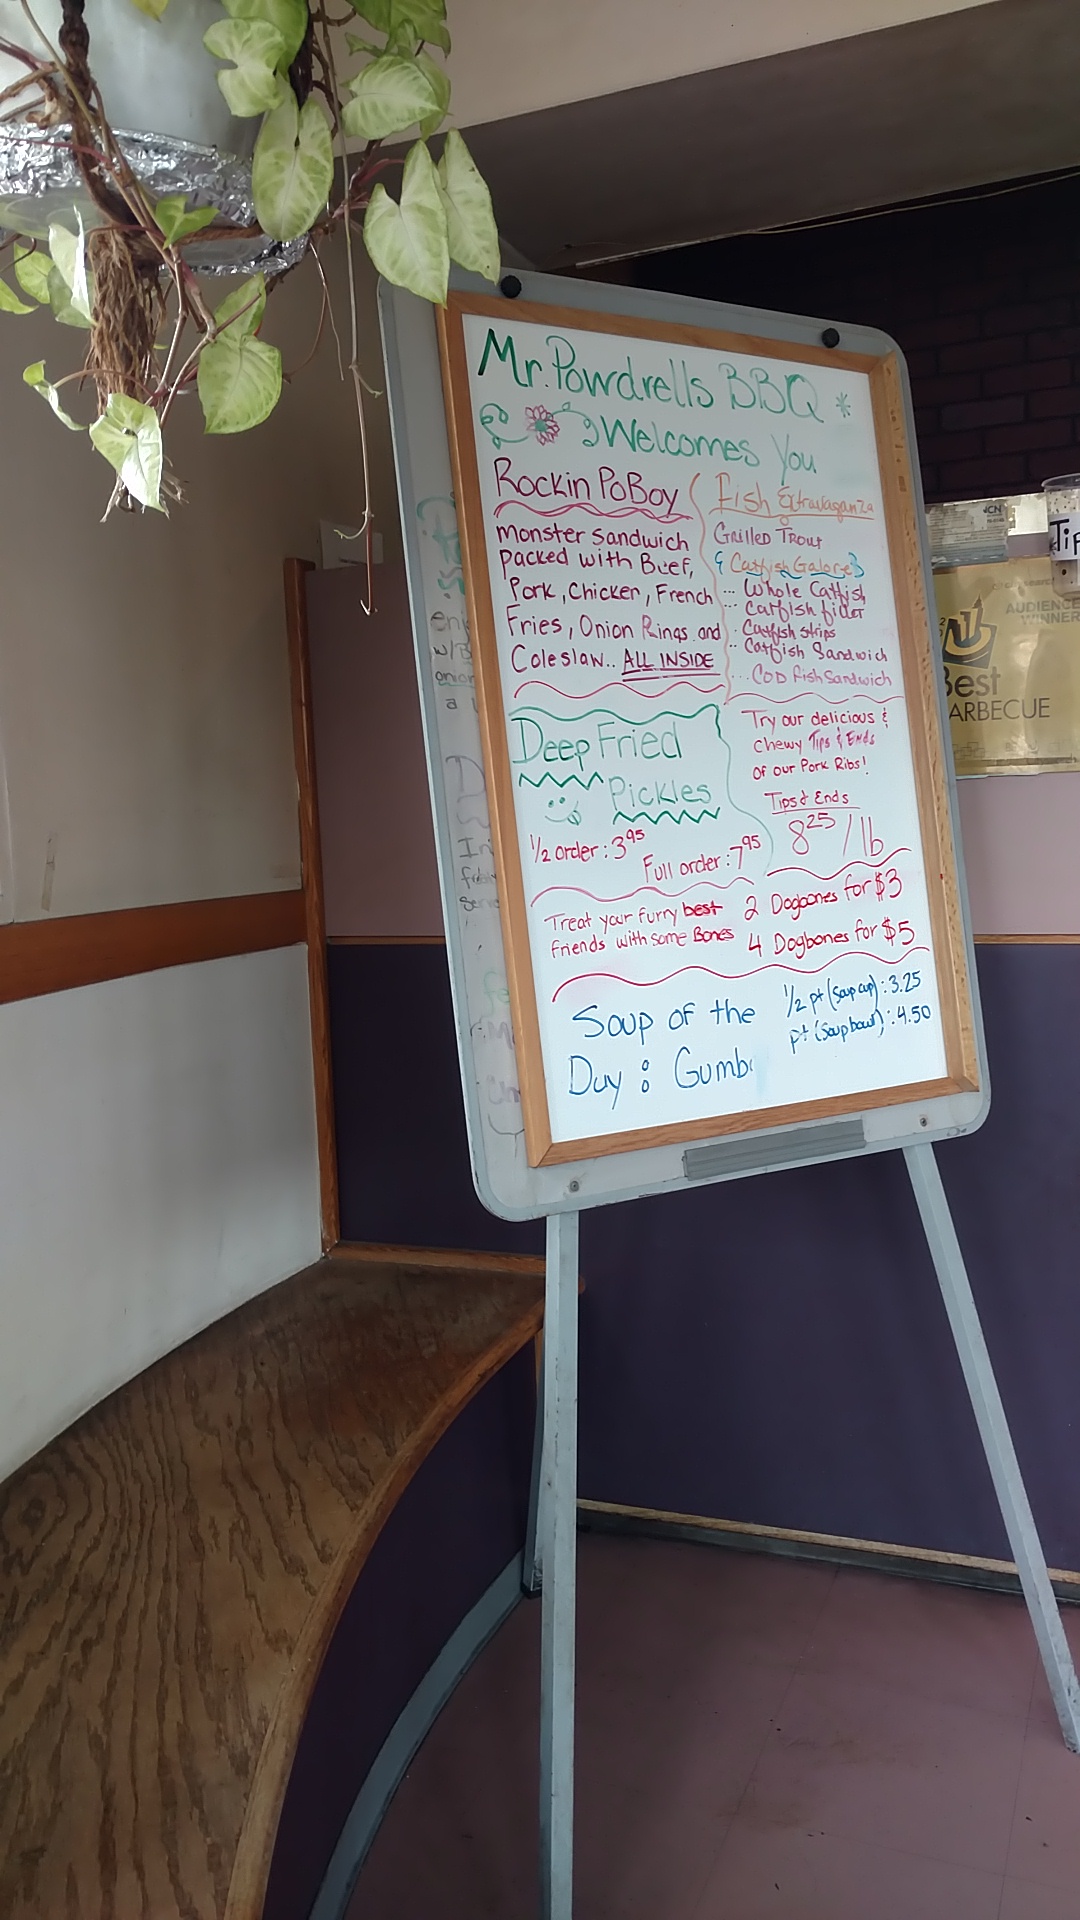 Mr. Powdrells BBQ
Welcomes You
Rockin PoBoy
Monster Sandwich
packed with Beef,
Pork, Chicken, French
Fries, Onion Rings and
Coleslaw.. ALL INSIDE
Fish Extravaganza
Grilled Trout
& Catfish Galore
... Whole Catfish
... Catfish fillet
. Catfish strips
.. Catfish Sandwich
... COD Fish Sandwich
Deep Fried
Pickles
1/2 order: 3.95
Full order: 7.95
Try our delicious &
chewy Tips & Ends
of our Pork Ribs!
Tips & Ends
8.25 / lb
Treat your furry best
friends with some Bones
2 Dogbones for $3
4 Dogbones for $5
Soup of the
Day: Gumb
1/2 pt (soup cup): 3.25
pt (soup bowl): 4.50
AUDIENCE
WINNER
Best
ARBECUE
Tip